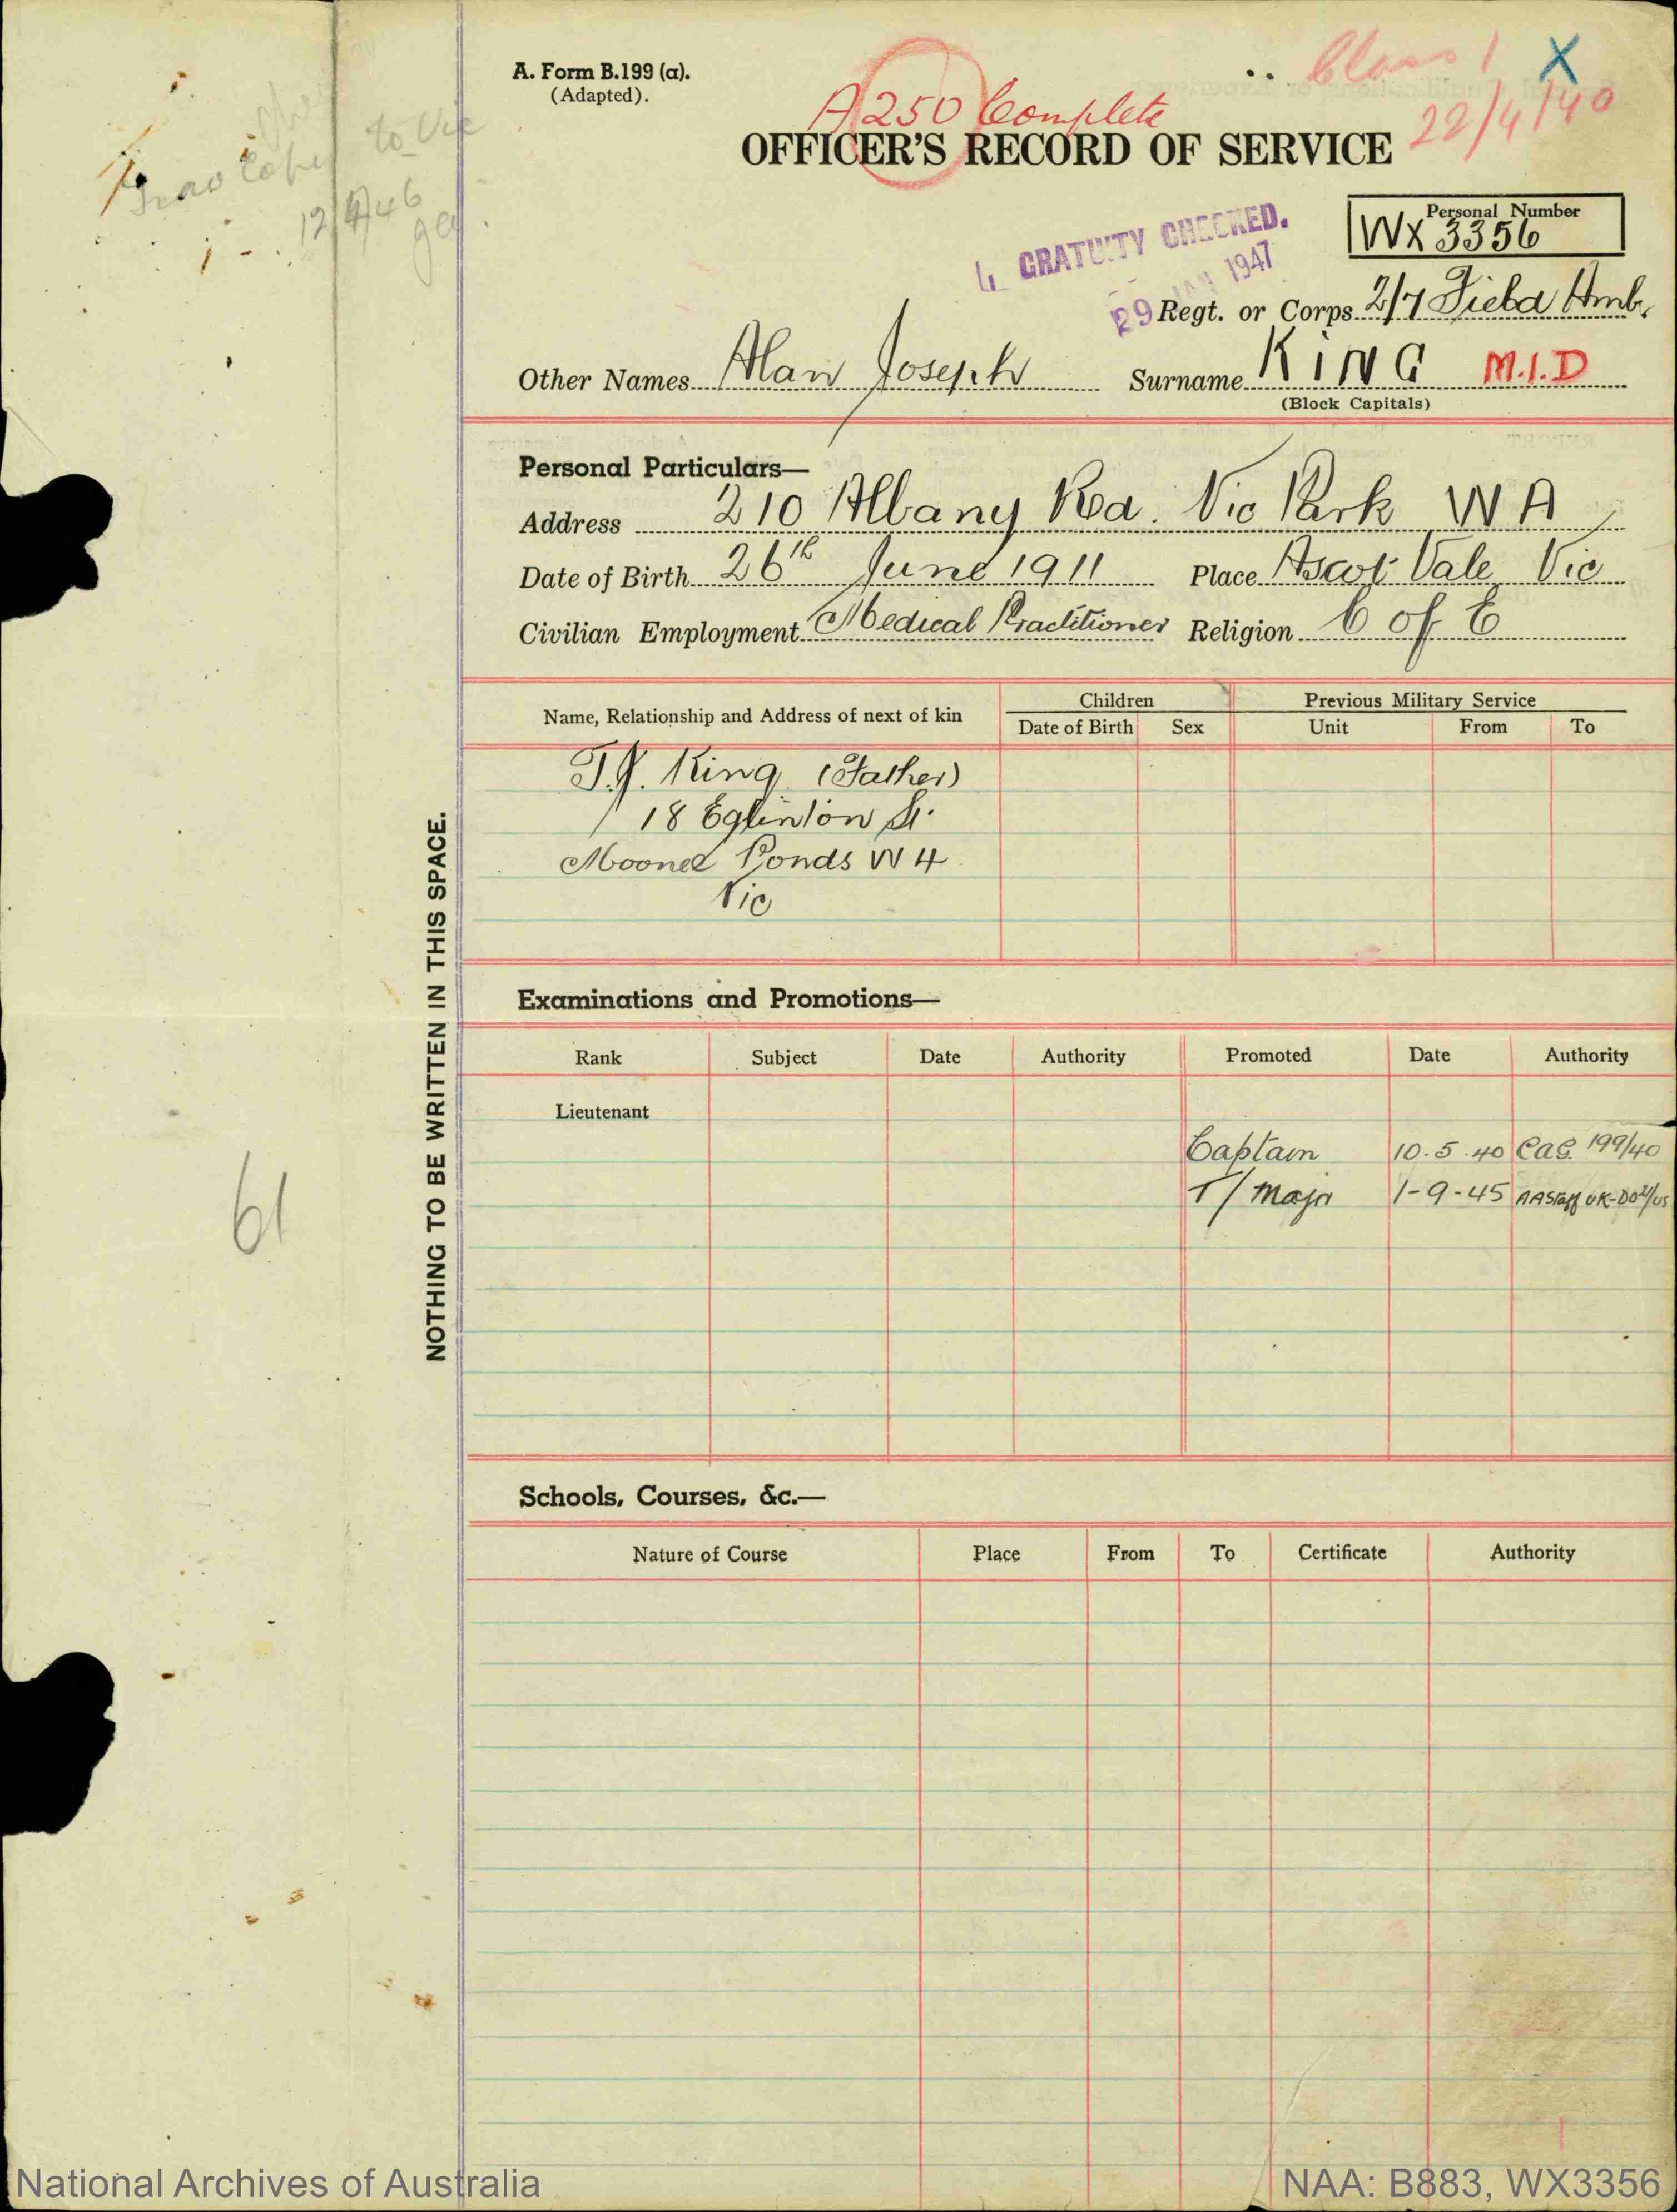 A. Form B.199 (a).
(Adapted).
Class 1 X
A250 Complete
22/4/40
OFFICER'S RECORD OF SERVICE
to Vic
12/4/46
Personal Number
WX 3356
GRATUITY CHECKED.
29 JAN 1947
Regt. or Corps 2/7 Field Amb.
Other Names Alan Joseph Surname KING M.I.D
(Block Capitals)
Personal Particulars—
Address 210 Albany Rd. Vic Park W A
Date of Birth 26th June 1911 Place Ascot Vale Vic
Civilian Employment Medical Practitioner Religion C of E
Name, Relationship and Address of next of kin Children Previous Military Service
Date of Birth Sex Unit From To
T.J. King (Father)
18 Eglinton St.
Moonee Ponds W 4
Vic
NOTHING TO BE WRITTEN IN THIS SPACE.
61
Examinations and Promotions—
Rank Subject Date Authority Promoted Date Authority
Lieutenant
Captain 10.5.40 CAG 199/40
T/ Major 1-9-45 AA Staff UK-DO
Schools, Courses, &c.—
Nature of Course Place From To Certificate Authority
National Archives of Australia NAA: B883, WX3356